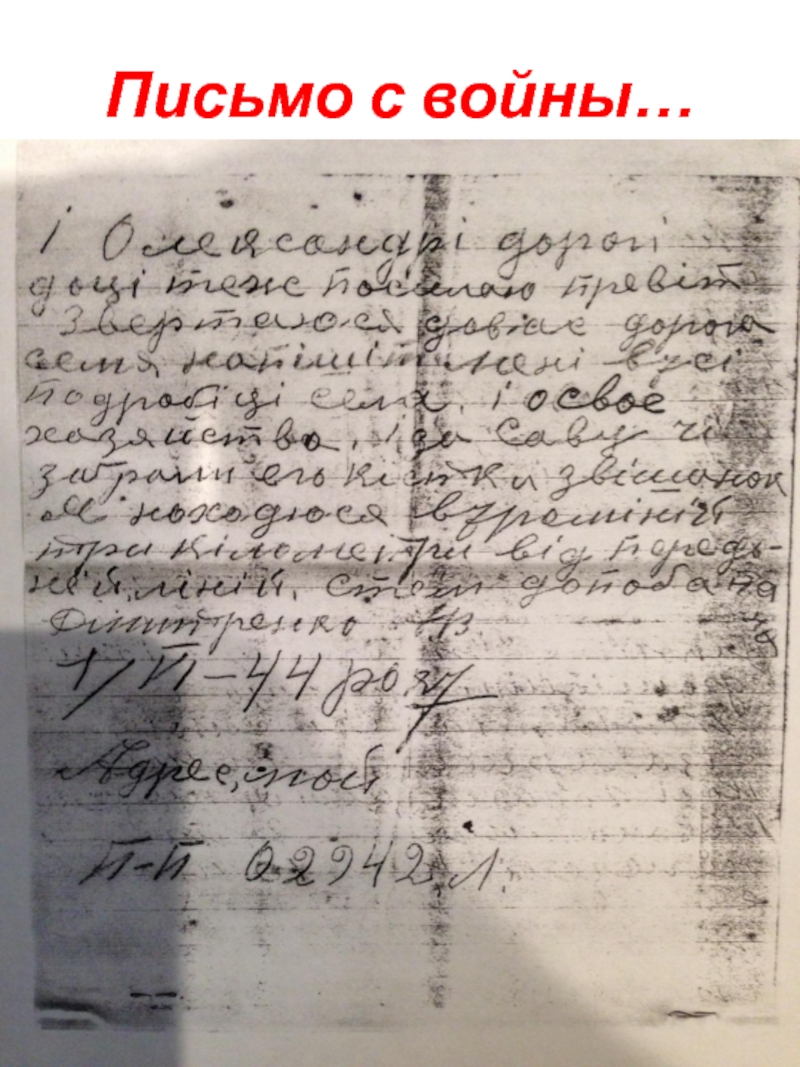 Письмо с войны...
і Олександрі дорогі
доці теж посилаю превіт
Звертаюся довіас дорога
семя напішіт мені вусі
подробіці семя, і освое
хазяйство, і за Саву чі
забрали его кістки звішанок
Я находюся взроміній
три кілометри від передь-
ней, ліній, стем допобаченя
Дмитренко
1/II-44 року
Адрес, мой
П-П 02942 Л.